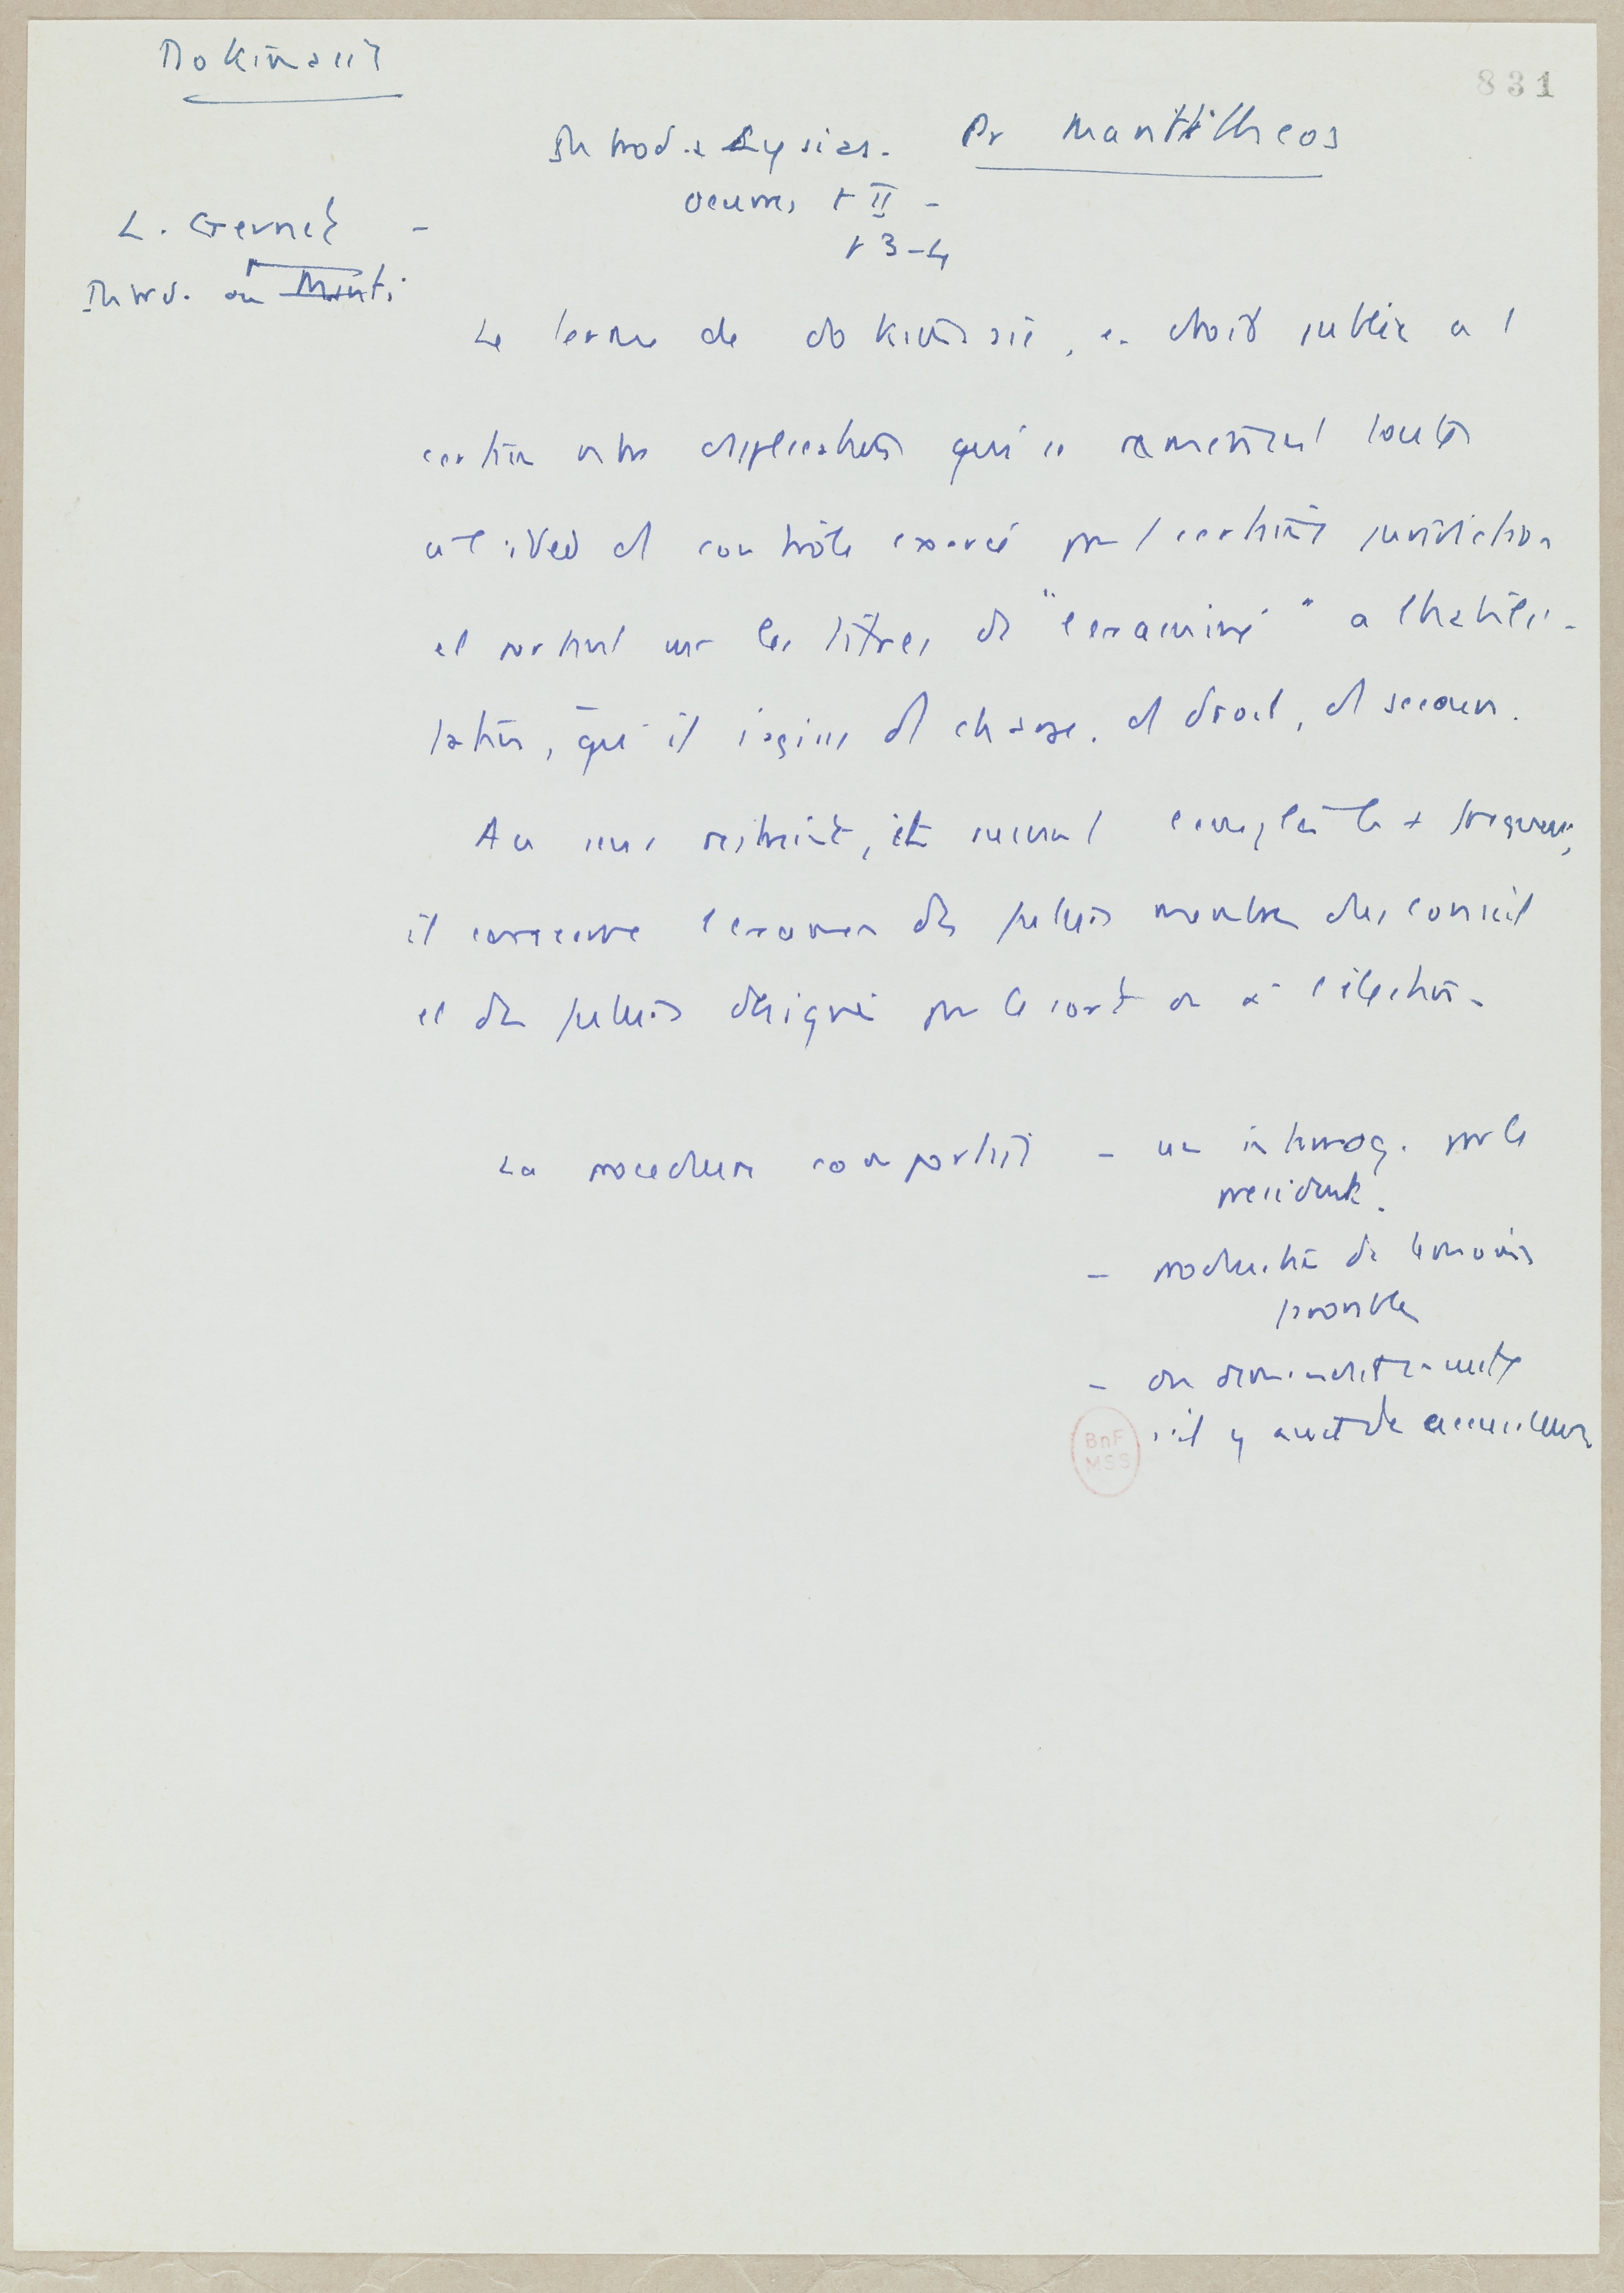 Dokimasie
831
Introd. à Lysias. Pr Mantitheos
Oeuvres t II -
p 3-4
L. Gernet -
Introd. au Manti
Le terme de dokimasie, en droit public a
certain nbre d'applications qui se ramènent toutes
à l'idée d'un contrôle exercé par certaines juridictions
et portant sur les titres de "l'examiné" à l'habili-
tation, qu'il s'agisse de charge, de droit, de secours.
Au sens restreint, et suivant l'emploi le + fréquent,
il concerne l'examen des futurs membres du conseil
et des futurs désignés par le sort ou à l'élection -
La procédure comportait - un interrog. par le
président.
- production de témoins
favorables
- on demandait ensuite
s'il y avait des accusateurs
BnF
MSS